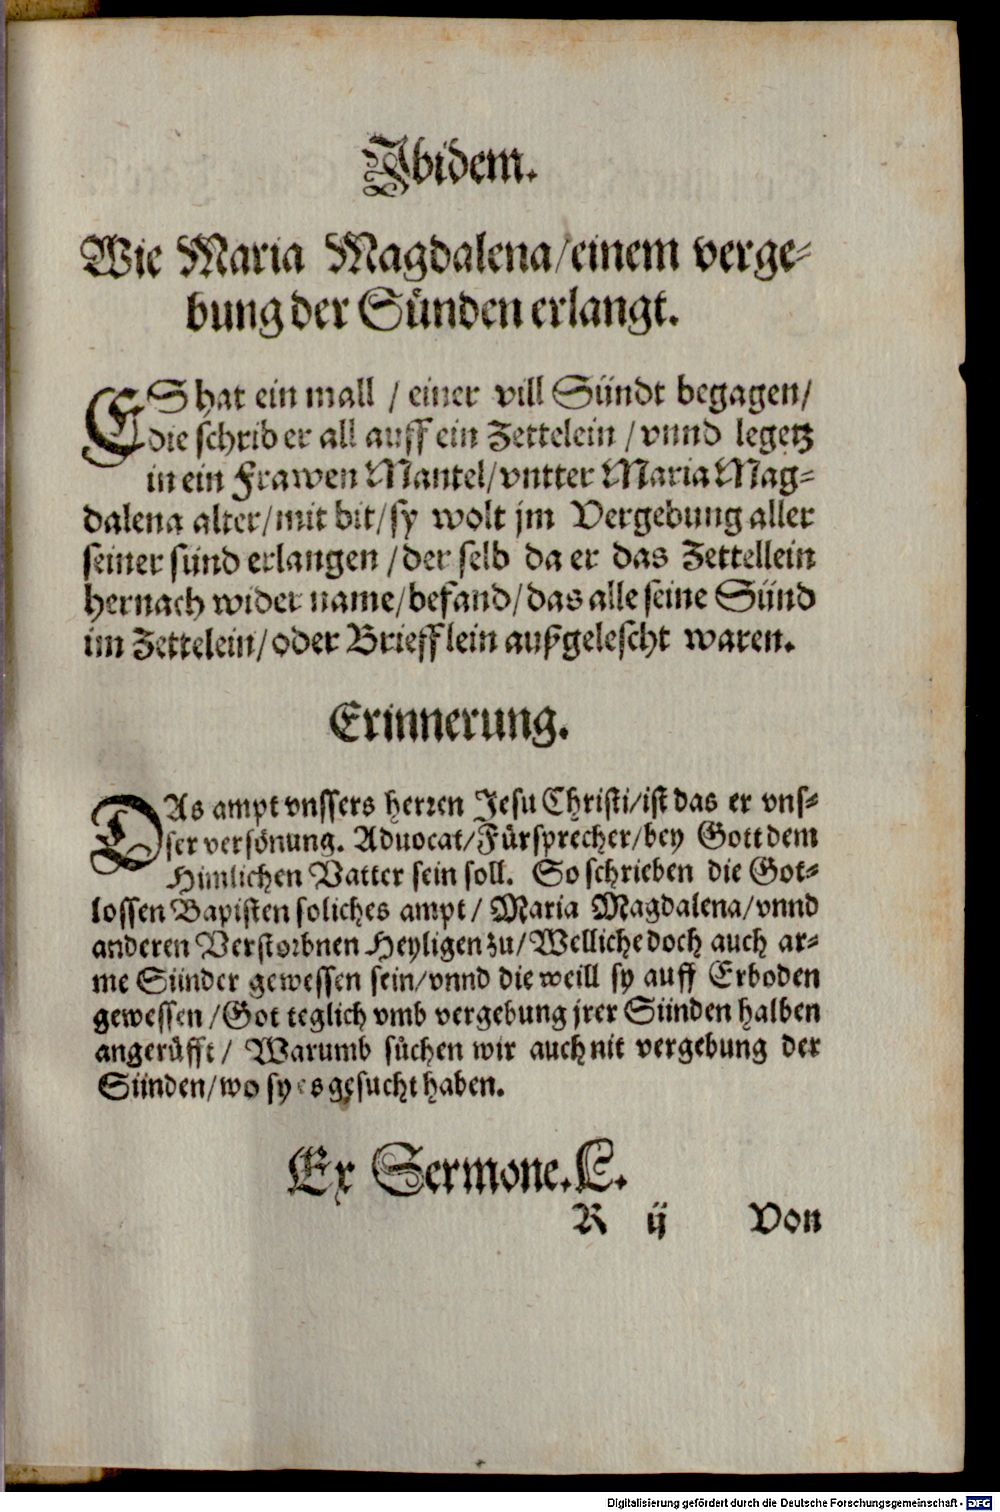 Ibidem.
Wie Maria Magdalena/einem verge-
bung der Sünden erlangt.
ES hat ein mall / einer vill Sündt begagen/
die schrib er all auff ein Zettelein / vnnd legetz
in ein Frawen Mantel/vntter Maria Mag-
dalena alter/mit bit/sy wolt jm Vergebung aller
seiner sünd erlangen /der selb da er das Zettellein
hernach wider name/befand/das alle seine Sünd
im Zettelein/oder Briefflein außgelescht waren.
Erinnerung.
DAs ampt vnssers herren Jesu Christi/ist das er vns-
ser versönung. Aduocat/Fürsprecher/bey Gott dem
Himlichen Vatter sein soll. So schrieben die Got-
lossen Bapisten soliches ampt/ Maria Magdalena/vnnd
anderen Verstorbnen Heyligen zu/Welliche doch auch ar-
me Sünder gewessen sein/vnnd die weill sy auff Erboden
gewessen /Got teglich vmb vergebung jrer Sünden halben
angerüfft/ Warumb süchen wir auch nit vergebung der
Sünden/wo sy es gesucht haben.
Ex Sermone. E.
R ij Von
Digitalisierung gefördert durch die Deutsche Forschungsgemeinschaft - DFG